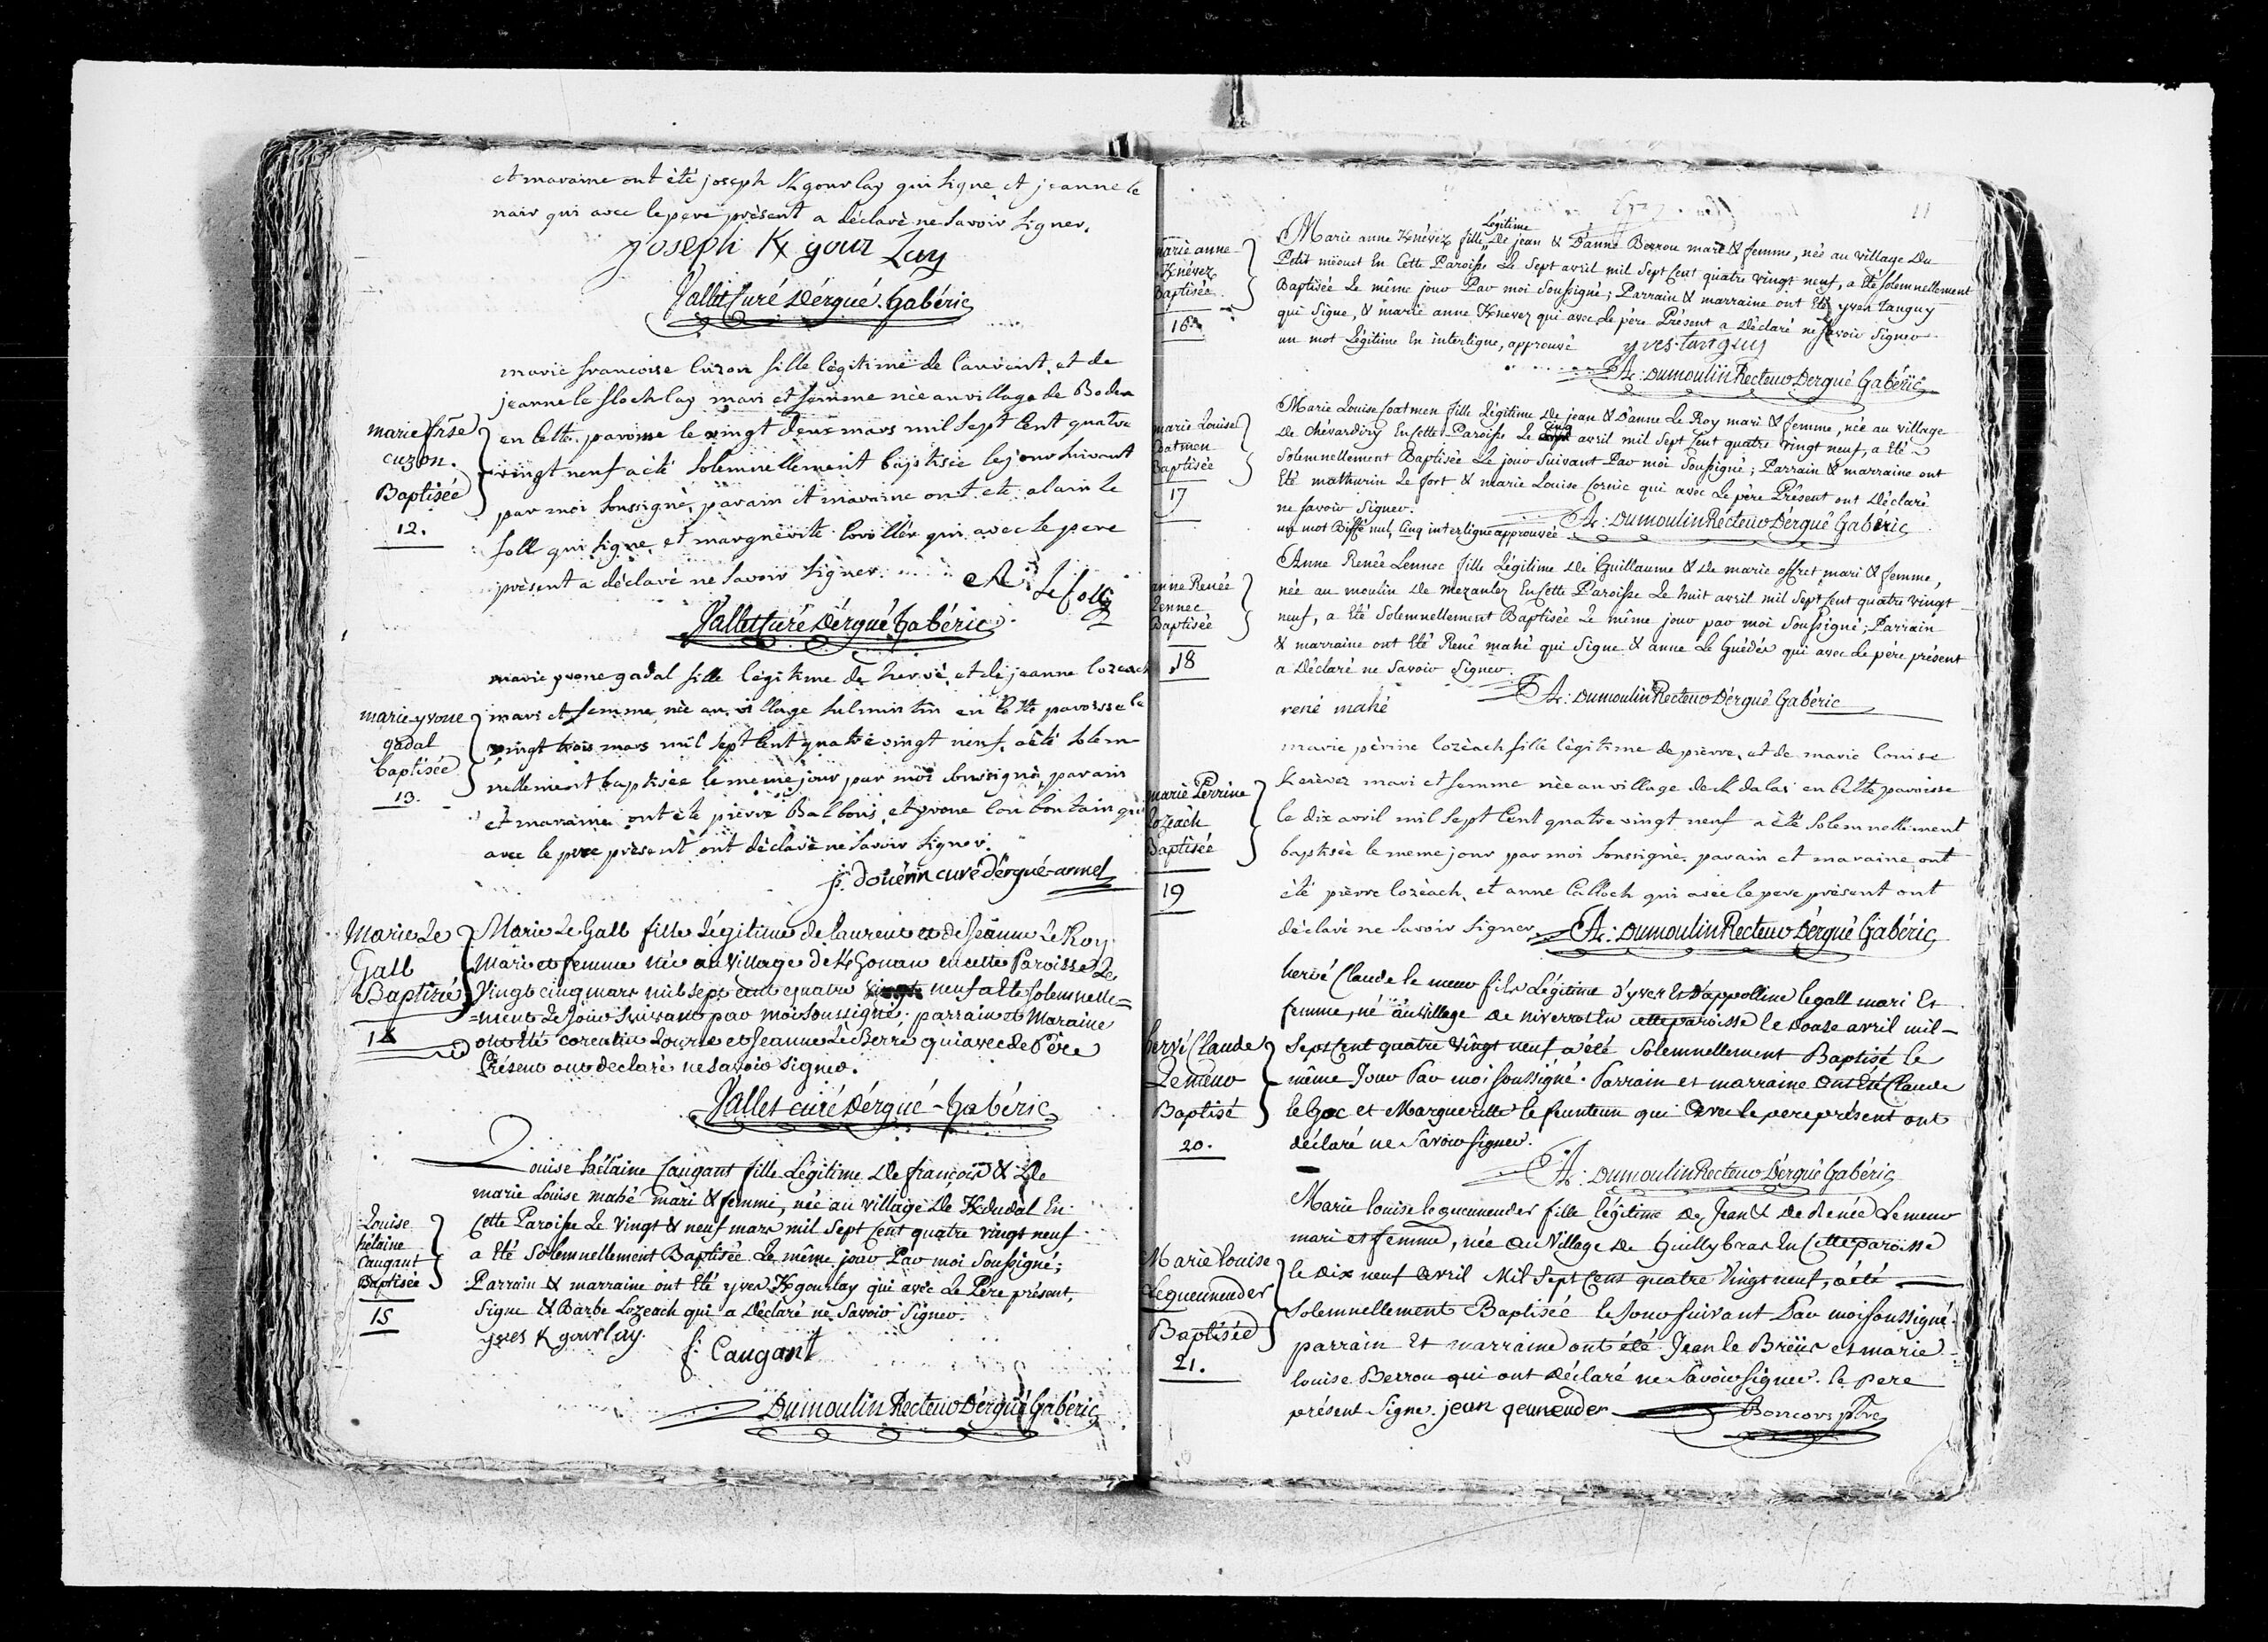 et maraine ont été joseph K gourlay qui signe et jeanne le
nair qui avec le pere présent a déclaré ne savoir signer.
joseph K gour Lay
Vallet Curé Dérgué-Gabéric
marie francoise cuzon fille légitime de laurent, et de
jeanne le flochlay mari et femme née au village de Boden
marie frse
cuzon.
Baptisée
12.
en cette paroisse le vingt deux mars mil sept cent quatre
vingt neuf a été solemnellement baptisée le jour suivant
par moi soussigné, parain et maraine ont été alain le
foll qui signe, et margueritte corollér qui avec le pere
présent a déclaré ne savoir signer. Le foll
Vallet Curé Dérgué Gabéric
marie yvone gadal fille légitime de hervé, et de jeanne lozeach
marie yvone
gadal
baptisée
13.
mari et femme née au village sulmintin en cette paroisse le
vingt trois mars mil sept cent quatre vingt neuf, a été solem-
nellement baptisée le meme jour par moi soussigné, parain
et maraine ont été pierre Balbous, et yvone lou boutain qui
avec le pere présent ont déclaré ne savoir signer.
f. Douérin curé d'ergué-armel
Marie Le
Gall
Baptizée
14
Marie Le Gall fille Légitime de laurent et de Jeanne Le Roy
Mari et femme née au village de K Gonan en cette Paroisse Le
Vingt cinq mars mil sept cent quatre vingt neuf a été solemnelle=
=ment Le Jour suivant par moi soussigné. parrain et Maraine
ont été corentin Lourie et Jeanne Le Berre qui avec le Père
Présent ont declaré ne savoir signer.
Vallet curé Dérgué-Gabéric
Louise hélaine Caugant fille Légitime De françois & De
marie Louise mahé mari & femme, née au village De Kdudal En
Louise
hélaine
Caugant
Baptisée
15
Cette Paroisse Le vingt & neuf mars mil sept Cent quatre vingt neuf
a Eté Solemnellement Baptisée Le même jour Par moi Soussigné;
Parrain & marraine ont Eté yves Kgourlay qui avec Le Père présent,
Signe & Barbe Lozeach qui a Déclaré ne Savoir Signer.
yves K gourlay. f: Caugant
Dumoulin Recteur Dérgué Gabéric
11
Légitime
Marie anne Knévez fille De jean & D'anne Berrou mari & femme, née au village Du
marie anne
Knévez
Baptisée
16.
Petit méouet En Cette Paroisse Le Sept avril mil Sept Cent quatre vingt neuf, a Eté solemnellement
Baptisée Le même jour Par moi Soussigné; Parrain & marraine ont Eté yves Tanguy
qui Signe, & marie anne Knevez qui avec Le père Présent a Déclaré ne savoir Signer
un mot Légitime En interligne, approuvé yves-tanguy
A: Dumoulin Recteur Dergué Gabéric
marie Louise
Coatmen
Baptisée
17
Marie Louise Coatmen fille Légitime De jean & D'anne Le Roy mari & femme, née au village
De Chévardiry En Cette Paroisse Le Cinq avril mil Sept Cent quatre vingt neuf, a Eté
Solemnellement Baptisée Le jour Suivant Par moi Soussigné; Parrain & marraine ont
Eté mathurin Le fort & marie Louise Cornic qui avec Le père Présent ont Déclaré
ne savoir Signer.
un mot Biffé nul, Cinq interligne approuvée A: Dumoulin Recteur Dérgué Gabéric
anne Renée
Lennec
Baptisée
18
Anne Renée Lennec fille Légitime De Guillaume & De marie offret mari & femme,
née au moulin De mezanlez En Cette Paroisse Le huit avril mil Sept Cent quatre vingt
neuf, a Eté Solemnellement Baptisée Le même jour par moi Soussigné; Parrain
& marraine ont Eté René mahé qui Signe & anne Le Guédés qui avec Le pere présent
a Déclaré ne Savoir Signer.
A: Dumoulin Recteur Dérgué Gabéric
rené mahé
marie périne lozéach fille légitime de pierre, et de marie louise
Kenévez mari et femme née au village de K dalaé en cette paroisse
marie Perrine
Lozeach
Baptisée
19
le dix avril mil sept cent quatre vingt neuf a été solemnellement
baptisée le meme jour par moi soussigné. parain et maraine ont
été pierre lozéach, et anne Calloch qui avec le pere présent ont
déclaré ne savoir signer A: Dumoulin Recteur Dérgué Gabéric
hervé Claude le meur fils Légitime d'yves et d'appolline le gall mari Et
femme, né au village De niverrot En cette paroisse le Douze avril mil-
hervé Claude
Le meur
Baptisé
20.
Sept Cent quatre vingt neuf, a été solemnellement Baptisé le
même Jour Par moi soussigné. Parrain et marraine ont Eté Claude
le Goc et Margueritte le feunteun qui avec le pere présent ont
déclaré ne Savoir signer.
A: Dumoulin Recteur Dérgué Gabéric
Marie louise le gueuneuder fille légitime De Jean & De Renée Le meur
mari et femme, née au Village de Guilly bras En Cette paroisse
Marie louise
Le gueuneuder
Baptisée
21.
le dix neuf avril Mil Sept Cent quatre Vingt neuf, a été
Solemnellement Baptisée le Jour suivant Par moi soussigné.
parrain Et marraine ont été Jean le Breüs et marie
louise Berrou qui ont Déclaré ne Savoir signer. le pere
présent Signe. jean qeuneuder Boncors ptre